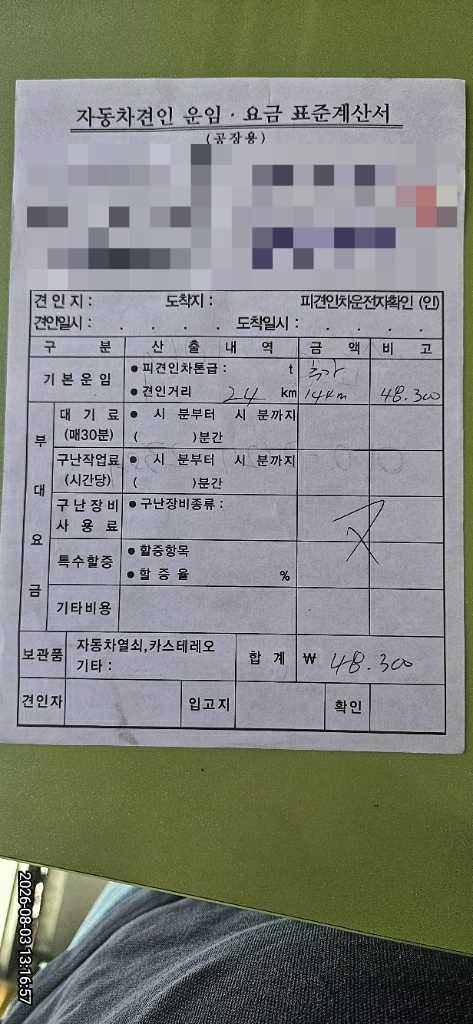 자동차견인 운임 · 요금 표준계산서
(공장용)
견 인 지 : 도착지 : 피견인차운전자확인 (인)
견인일시 : . . . . 도착일시 : . . . .
구 분 산 출 내 역 금 액 비 고
기 본 운 임 ● 피견인차톤급 : t 추가
● 견인거리 24 km 14km 48.300
부 대 요 금
대 기 료 (매30분) ● 시 분부터 시 분까지
( )분간
구난작업료 (시간당) ● 시 분부터 시 분까지
( )분간
구 난 장 비 사 용 료 ● 구난장비종류 :
특수할증 ● 할증항목
● 할 증 율 %
기타비용
보관품 자동차열쇠,카스테레오
기타 :
합 계 ₩ 48.300
견인자 입고지 확인
2026-08-03 13:16:57